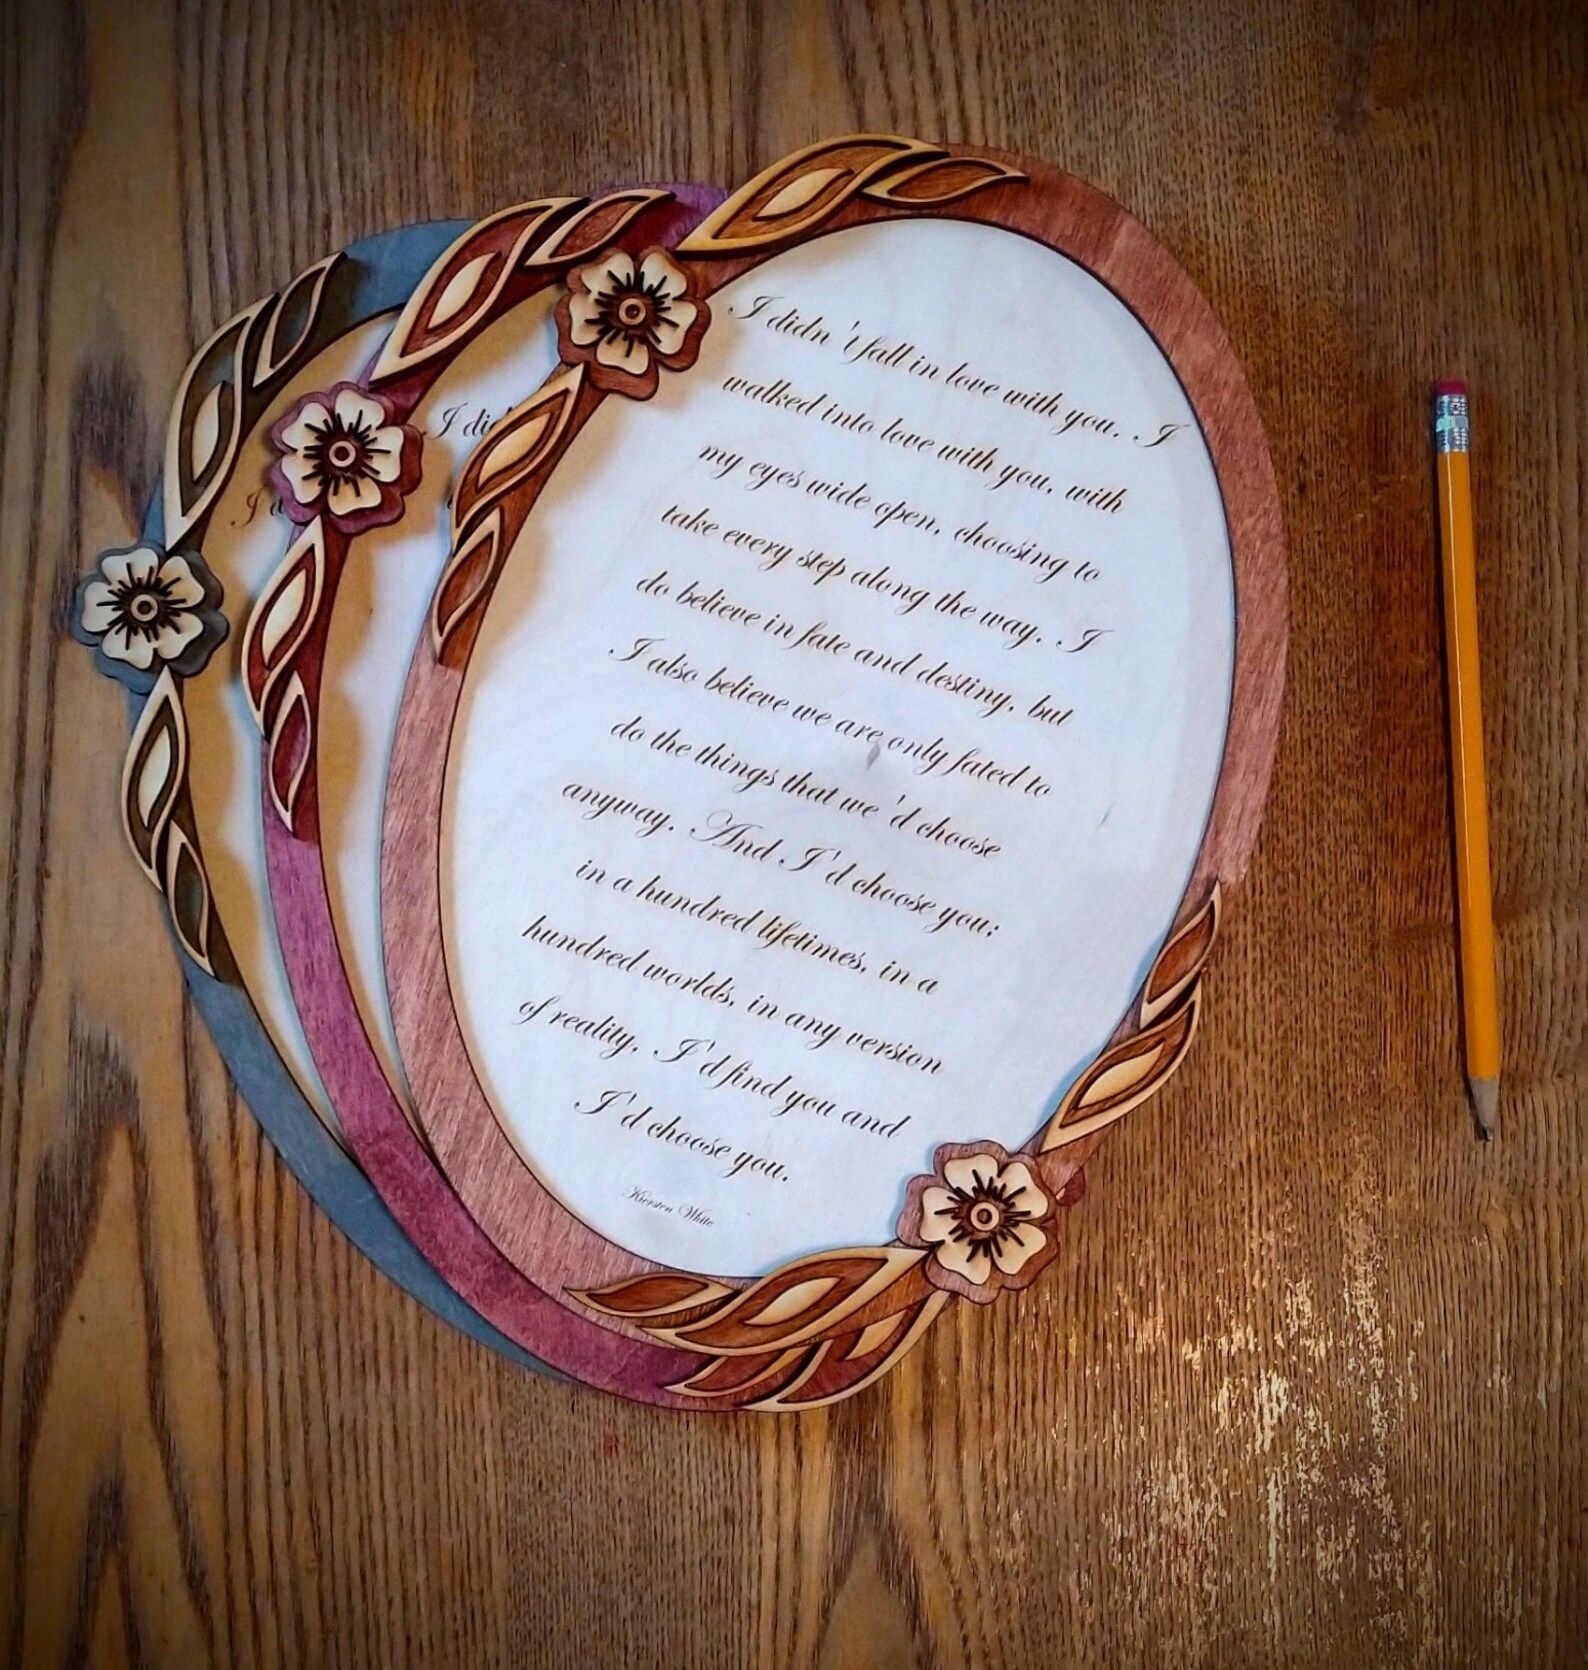 I didn't fall in love with you. I
walked into love with you, with
my eyes wide open, choosing to
take every step along the way. I
do believe in fate and destiny, but
I also believe we are only fated to
do the things that we'd choose
anyway. And I'd choose you;
in a hundred lifetimes, in a
hundred worlds, in any version
of reality, I'd find you and
I'd choose you.
Kiersten White
I did
I d